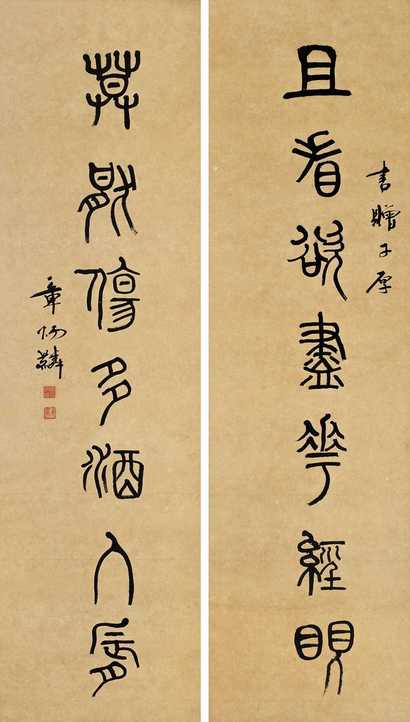 書贈子厚
且看欲盡華經眼
莫猒傷多酒入脣
章炳麟